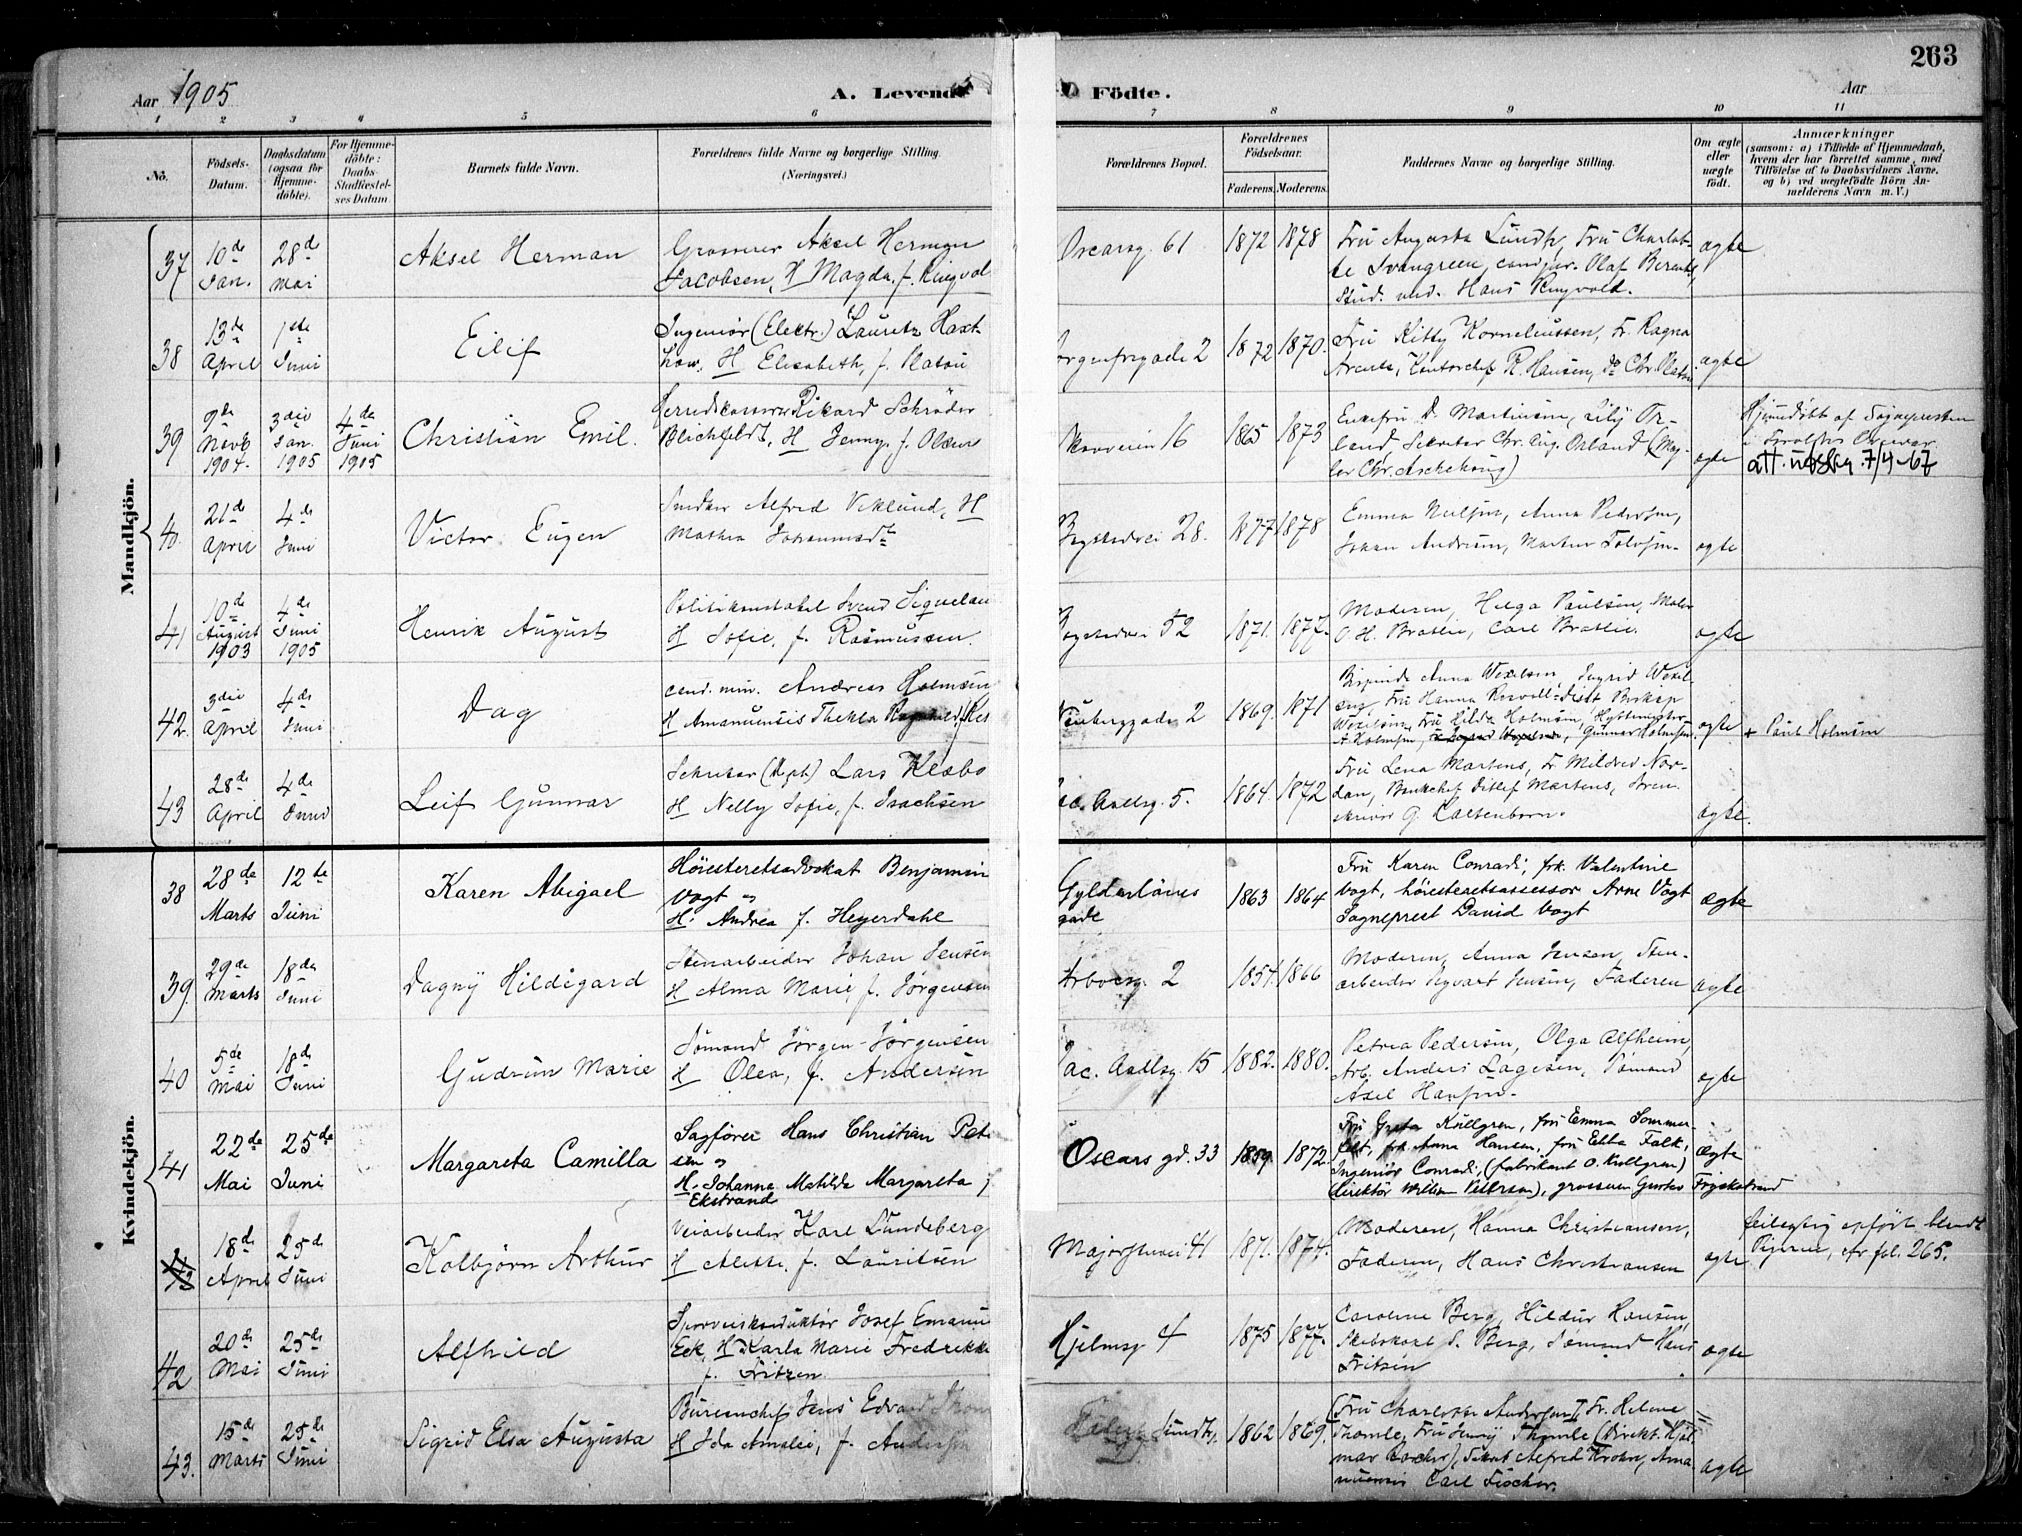 263
Aar 1905
A. Levende Födte.
Aar
1 2 3 4 5 6 7 8 9 10 11
No.
Födsels-
Datum.
Daabsdatum
(ogsaa for
Hjemme-
döbte).
For Hjemme-
döbte:
Daabs-
Stadfæstel-
ses Datum.
Barnets fulde Navn.
Forældrenes fulde Navne og borgerlige Stilling.
(Næringsvei.)
Forældrenes Bopæl.
Forældrenes
Födselsaar.
Faderens. Moderens.
Faddernes Navne og borgerlige Stilling.
Om ægte
eller
uægte
födt.
Anmærkninger
(saasom: a) i Tilfælde af Hjemmedaab,
hvem der har forrettet samme, med
Tilföielse af to Daabsvidners Navne.
og b) ved uægtefödte Börn An-
melderens Navn m. V.)
Mandkjön.
37
10de
Jan.
28de
Mai
Aksel Herman
Grosserer Aksel Herman
Jacobsen, H Magda f. Ringvol
Oscarsg. 61
1872 1878
Fru Augusta Lundh, Fru Charlot-
te Svangreen, cand jur. Olaf
Stud. med. Hans Ringvold.
ægte
38
13de
April
1ste
Juni
Eilif
Ingeniør (Elektr.) Lauritz Haxt
how, H Elisabeth, f. Platou
orgenfrigade 2
1872 1870.
Fru Kitty Korneliussen, Fr. Ragna
Arentz, Kontorchef R. Hansen, do Chr. Platou
ægte
39
9de
Novb
1904.
3die
Jan.
1905
4de
Juni
1905
Christian Emil.
Herredskasserer Rikard Schrøder
Blichfeldt, H Jenny, f. Olsen
Skovveien 16
1865 1873
Enkefru D. Martinsen, Lily Or-
land, Sekretær Chr. Aug. Orland (Ma-
jor Chr. Aschehoug)
ægte
Hjemdøbt af Sognepresten
att. utstg. 7/4-67
40
21de
April
4de
Juni
Victor Eugen
Snedker Alfred Viklund, H
Mathea Johannesdt
Bogstadvei 28.
1877 1878
Emma Nielsen, Anna Pedersen,
Johan Andersen, Martin Tolvsen.
ægte
41
10de
August
1903
4de
Juni
1905
Henrik August
Politikonstabel Svend Siqueland
H Sofie, f. Rasmussen.
Bogstadvei 52
1871. 1877.
Moderen, Helga Paulsen, Maler
O. H. Bratlie, Carl Bratlie.
ægte
42.
3die
April
4de
Juni
Dag
cand. min. Andreas Holmsen
H Amanuensis Thekla Ragnhild f. Res
Neuberggade 2
1869. 1871
Bispinde Anna Wexelsen, Ingrid Wexel-
sen, Fru Hanna Resvoll-Dieset, Biskop
Wexelsen, Fru Hilda Holmsen, Hyttemester
A. Holmsen, Gunnar Holmsen
ægte
+ Paul Holmsen
43
28de
April
4de
Juni
Leif Gunnar
Sekretær (Dept.) Lars Klæbo
H Nelly Sofie, f. Isachsen
Jac. Aallsg. 5.
1864. 1872
Fru Lena Martens, Fr. Mildred Nor-
dan, Bankchef Ditlef Martens, Soren-
skriver G. Caltenborn.
ægte.
Kvindekjön.
38
28de
Marts
12te
Juni
Karen Abigael
Höiesteretsadvokat Benjamin
Vogt og
H. Andrea f. Heyerdahl
Gyldenlöves
gade
1863 1864
Fru Karen Conradi, frk. Valentine
Vogt, höiesteretsassessor Arne Vogt
Sogneprest David Vogt
ægte
39.
29de
Marts
18de
Juni
Dagny Hildigard
Stenarbeider Johan Jensen
H Alma Marie, f. Jørgensen
Arboesg. 2
1854. 1866
Moderen, Anna Jensen, Sten-
arbeider Sigvart Jensen, Faderen
ægte
40
5de
Mai
18de
Juni
Gudrun Marie
Sømand Jørgen Jørgensen
H Olea, f. Andersen
Jac. Aallsg. 15
1882. 1880.
Petrea Pedersen, Olga Alfheim,
Arb. Anders Lagesen, Sømand
Axel Hansen.
ægte
41
22de
Mai
25de
Juni
Margareta Camilla
Sagförer Hans Christian Peter
sen og
H. Johanna Matilda Margareta f
Ekstrand
Oscars gd. 33
1859 1872.
Fru Greta Kullgren, fru Emma Sommer-
felt, frk. Anna Hansen, fru Ebba Falk,
Ingeniör Conradi, (fabrikant O. Kullgren)
(direktör William Petersen), grosserer Gustav Fogelstrand
ægte
42
18de
April
25de
Juni
Kolbjørn Arthur
Veiarbeider Karl Lundeberg
H Alette, f. Lauritsen
Majorstuvei 41
1871. 1874.
Moderen, Hanna Christiansen,
Faderen, Hans Christiansen
ægte
feilagtig opført blandt
Pigerne, cfr fol. 265.
42
20de
Mai
25de
Juni
Alfhild
Sporveiskonduktør Josef Emanu
Eek, H Karla Marie Fredrikke
f. Fritzen
Hjelmsg 4
1875 1877.
Caroline Berg, Hildur Hansen,
Skibskapt S. Berg, Sømand Hans
Fritzen
ægte
43.
15de
Marts
25de
Juni
Sigrid Elsa Augusta
Bureauchef Jens Edvard Thom
H Ida Amalei, f. Andersen
Eilert Sundts
1862 1869.
(Fru Charlotte Andersen), Fr. Helene
Thomle, Fru Jenny Thomle (Direkt. Hjal-
mar), Sekret Alfred Krohn, Ama-
nuensis Carl Fischer.
ægte